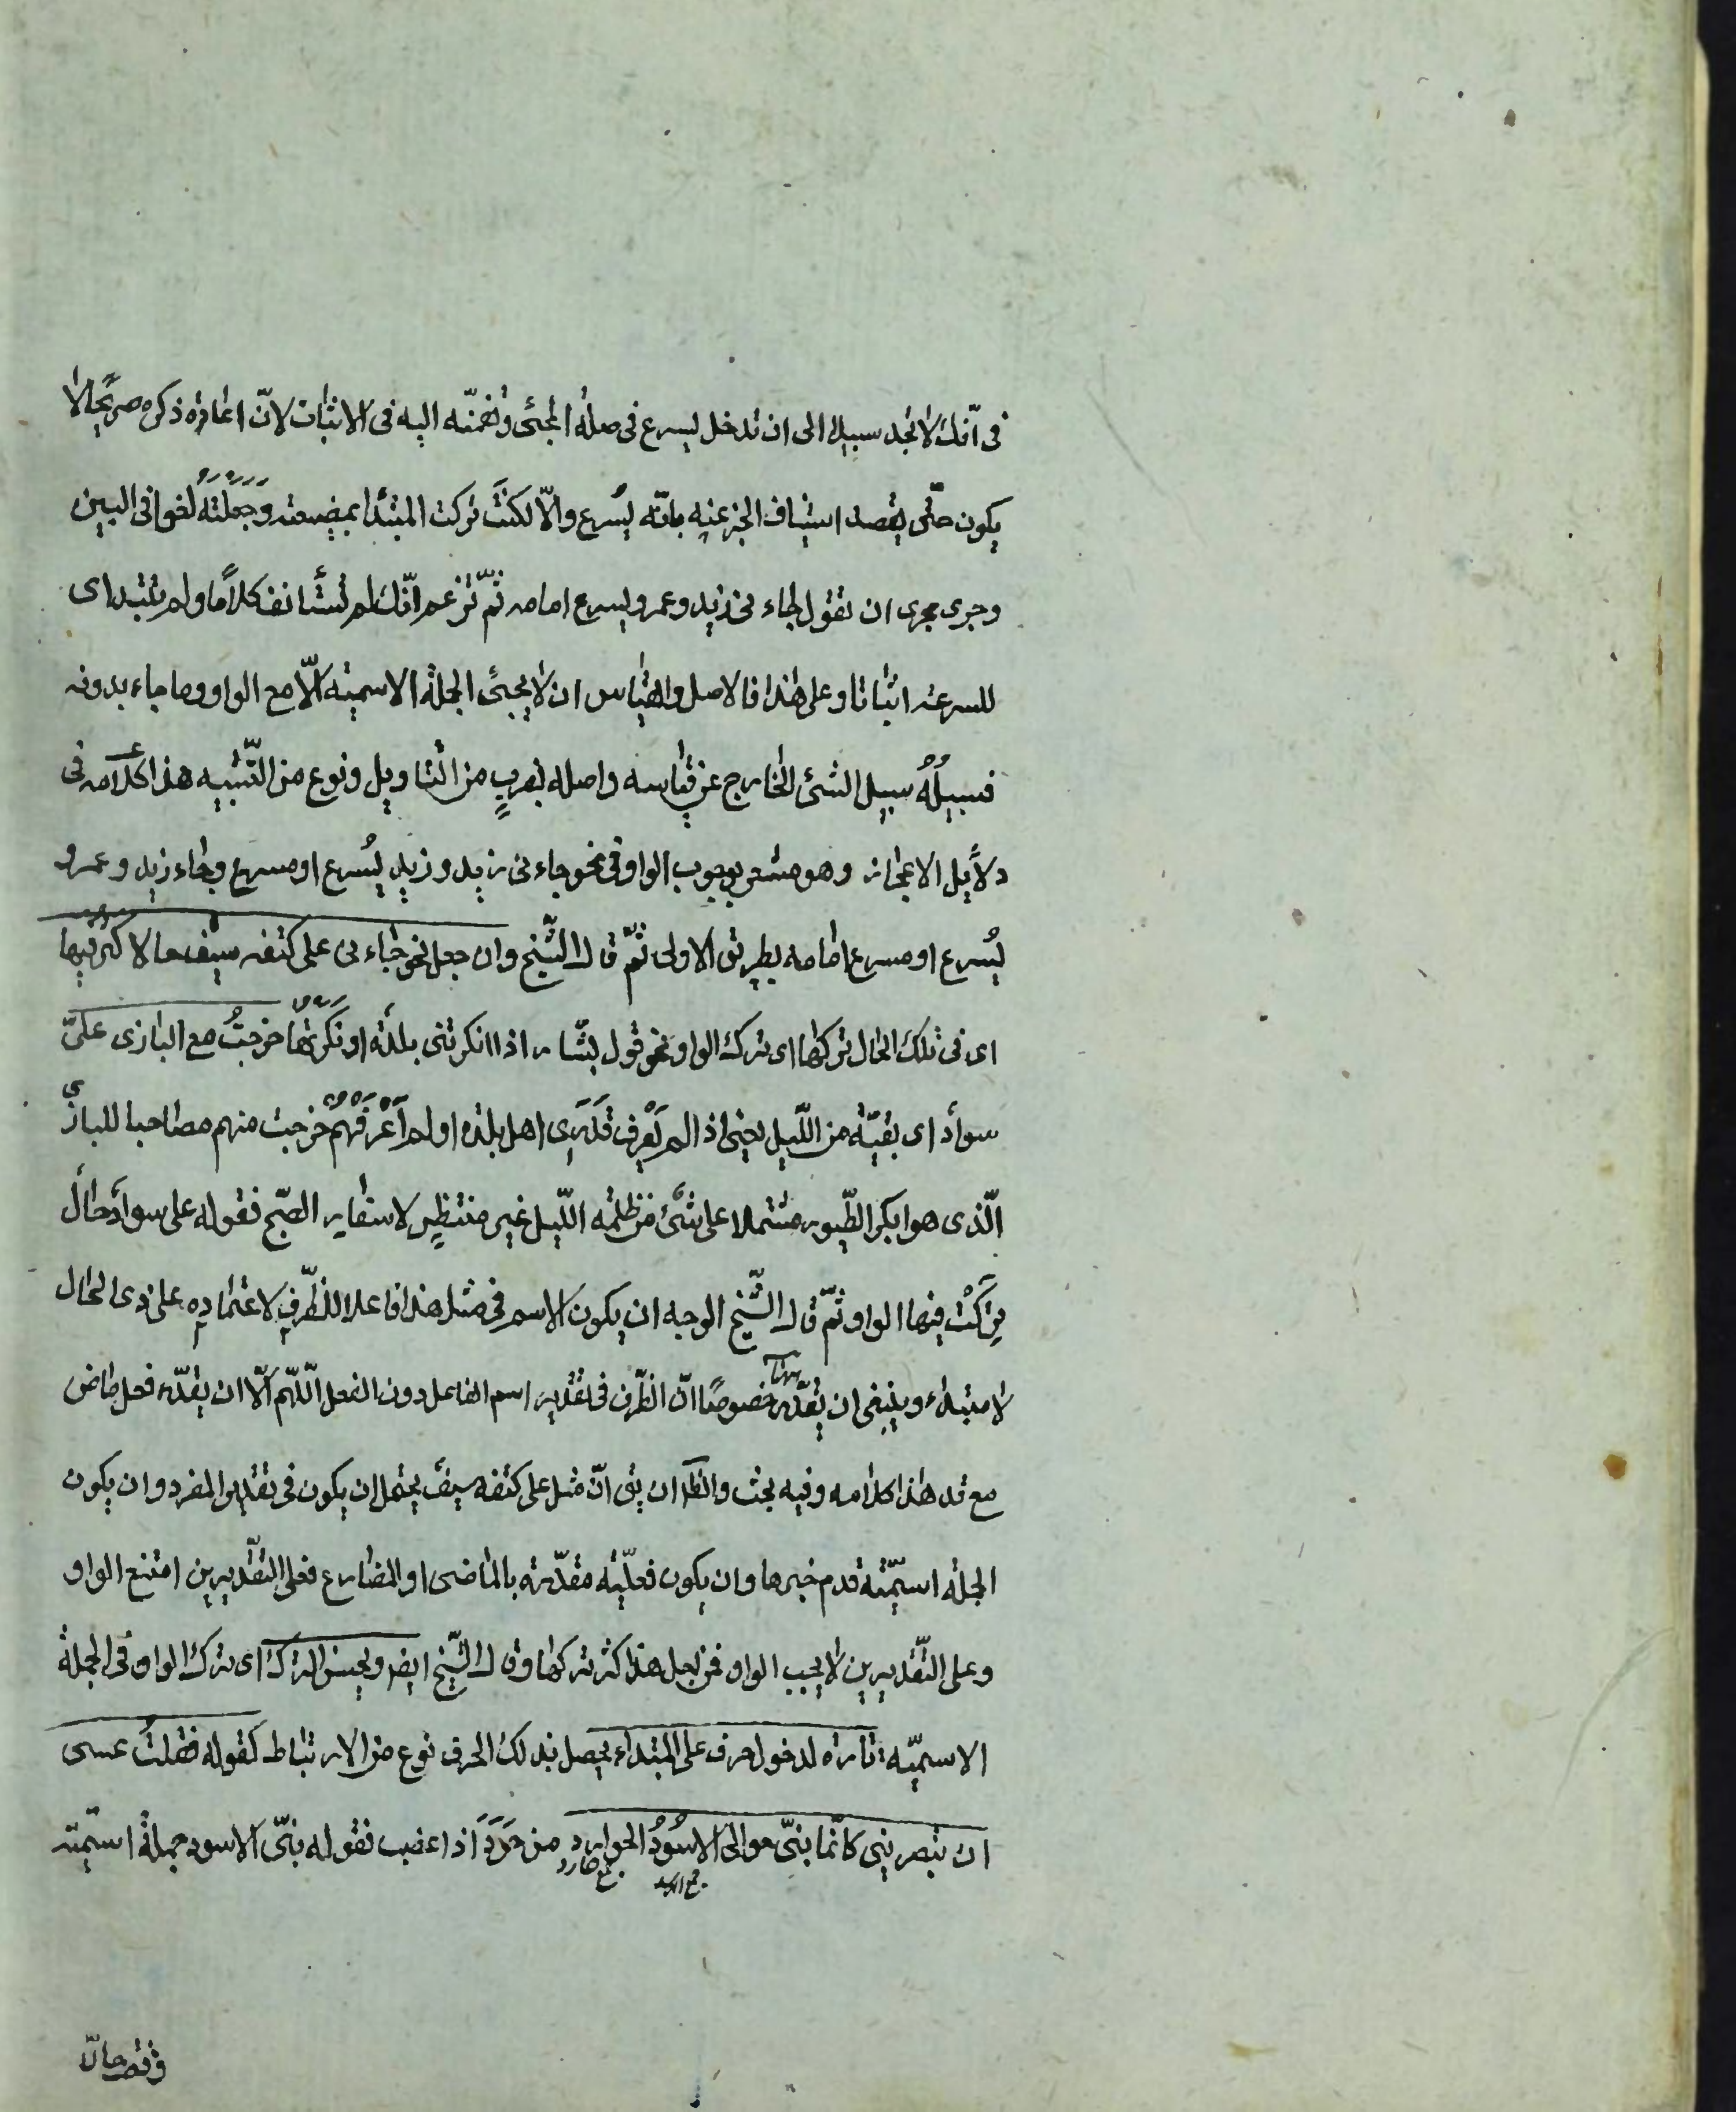 فى انّك لا تجد سبيلا الى ان تدخل يسرع فى صلة المجئ وتضمّه اليه فى الاثبات لانّ اعادة ذكره صريحا لا
يكون حتّى يقصد استيناف الخبر عنه بانّه يُسرع والّا لكنتَ تركت المبتدا بمضيعته وَجَعَلْتَهُ لغوا فى البين
وجرى مجرى ان تقول جاءنى زيد وعمرو يسرع امامه ثمّ تزعم انّك لم تستأنف كلامًا ولم تبتداى
للسرعة اثباتا وعلى هذا فالاصل والقياس ان لا يجئ الجملة الاسميّة الّا مع الواو وما جاء بدونه
فسبيلُهُ سبيل الشئ الخارج عن قياسه واصله بضربٍ من التاويل ونوع من التّشبيه هذا كلامه فى
دلايل الاعجاز وهو مشعر بوجوب الواو فى نحو جاءنى زيد وزيد يُسرع او مسرع وجاء زيد وعمرو
يُسرع او مسرع امامه بطريق الاولى ثمّ قال الشّيخ وان جعل نحو جاءنى على كتفه سيف حالا كثر فيها
اى فى تلك الحال تركها اى ترك الواو نحو قول بشّار اذا انكرتنى بلدة او نكرتُها خرجتُ مع البازى علىّ
سواد اى بقيّة من اللّيل يعنى اذا لم يَعْرِف قَدْرِى اهل بلدة او لم اَعْرَفْهُمْ خرجت منهم مصاحبا للبازى
الّذى هو ابكر الطّيور مشتملا على شئ من ظلمة اللّيل غير منتظرٍ لاسفار الصّبح فقوله على سواد حال
تُرِكَتْ فيها الواو ثمّ قال الشّيخ الوجه ان يكون الاسم فى مثل هذا فاعلا للظّرفِ لاعتمادِهِ على ذى الحال
لا مبتداء وينبغى ان يُقدّر ههنا خصوصًا انّ الظّرف فى تقدير اسم الفاعل دون الفعل اللّهمّ الّا ان يقدّر فعل ماض
مع قد هذا كلامه وفيه بحث والظّ ان يق انّ مثل على كتفه سيف يحتمل ان يكون فى تقدير المفرد وان يكون
الجملة اسميّة قدم خبرها وان يكون فعليّة مقدّرة بالماضى او المضارع فعلى التقديرين امتنع الواو
وعلى التّقديرين لا يجب الواو فمن اجل هذا كثر تركها وقال الشّيخ ايضا ويحسن الترك اى ترك الواو فى الجملة
الاسميّة تارة لدخول حرف على المبتداء يحصل بذلك الحرف نوع من الارتباط كقوله فقلت عسى
ان تبصرينى كانّما بنىّ حوالىّ الاسُودُ الحوارد من حَرَدَ اذا غضب فقوله بنىّ الاسود جملة اسميّة
جمع اسد
جمع حارد
وقع حالا